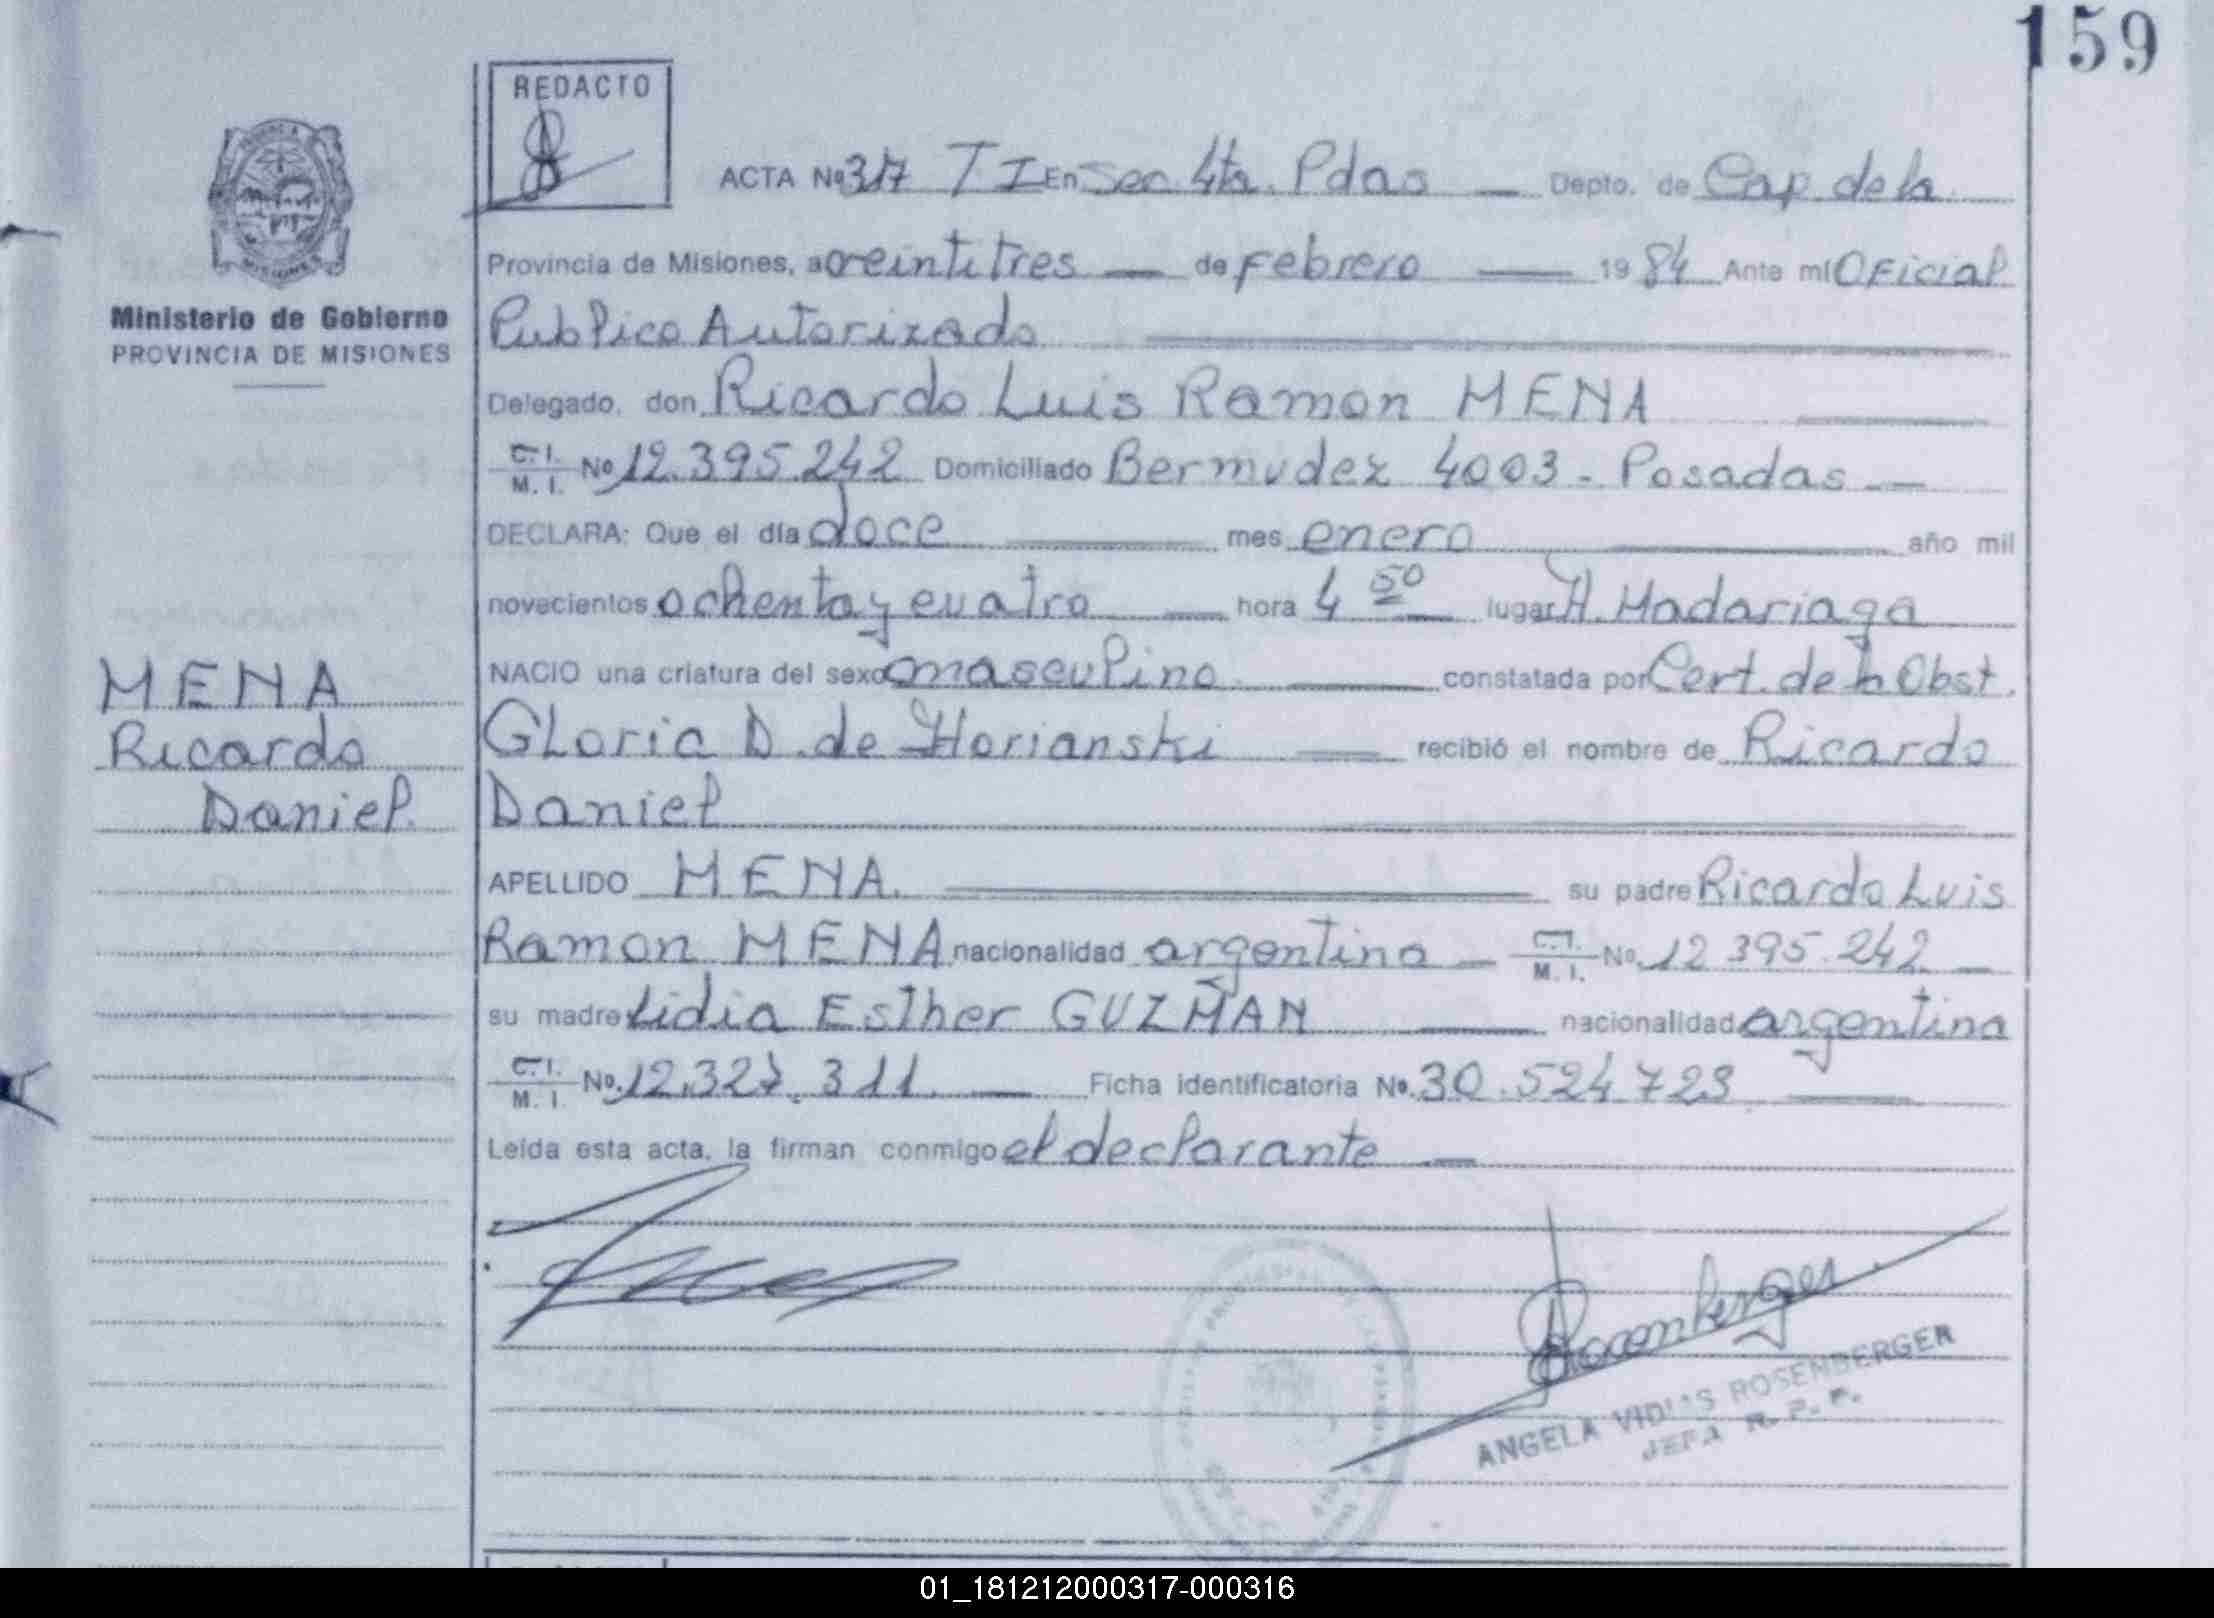 159
REDACTO
ACTA Nº 317 T I En Sec 4ta. Pdas Depto. de Cap. de la
Provincia de Misiones, a veintitres de Febrero 19 84 Ante mí Oficial
Ministerio de Gobierno
PROVINCIA DE MISIONES
Publico Autorizado
Delegado, don Ricardo Luis Ramon MENA
C. I. M. I. Nº 12.395.242 Domiciliado Bermudez 4003 - Posadas
DECLARA: Que el día doce mes enero año mil
novecientos ochenta y cuatro hora 4 50 lugar H. Madariaga
NACIO una criatura del sexo masculino constatada por Cert. de la Obst.
Gloria D. de Horianski recibió el nombre de Ricardo
Daniel
MENA
Ricardo
Daniel.
APELLIDO MENA. su padre Ricardo Luis
Ramon MENA nacionalidad argentina C. I. M. I. Nº 12 395.242
su madre Lidia Esther GUZMAN nacionalidad argentina
C. I. M. I. Nº. 12.327.311 Ficha identificatoria Nº. 30.524.723
Leída esta acta, la firman conmigo el declarante
Rosenberger
ANGELA VIDIAS ROSENBERGER
JEFA R. P. P.
01_181212000317-000316